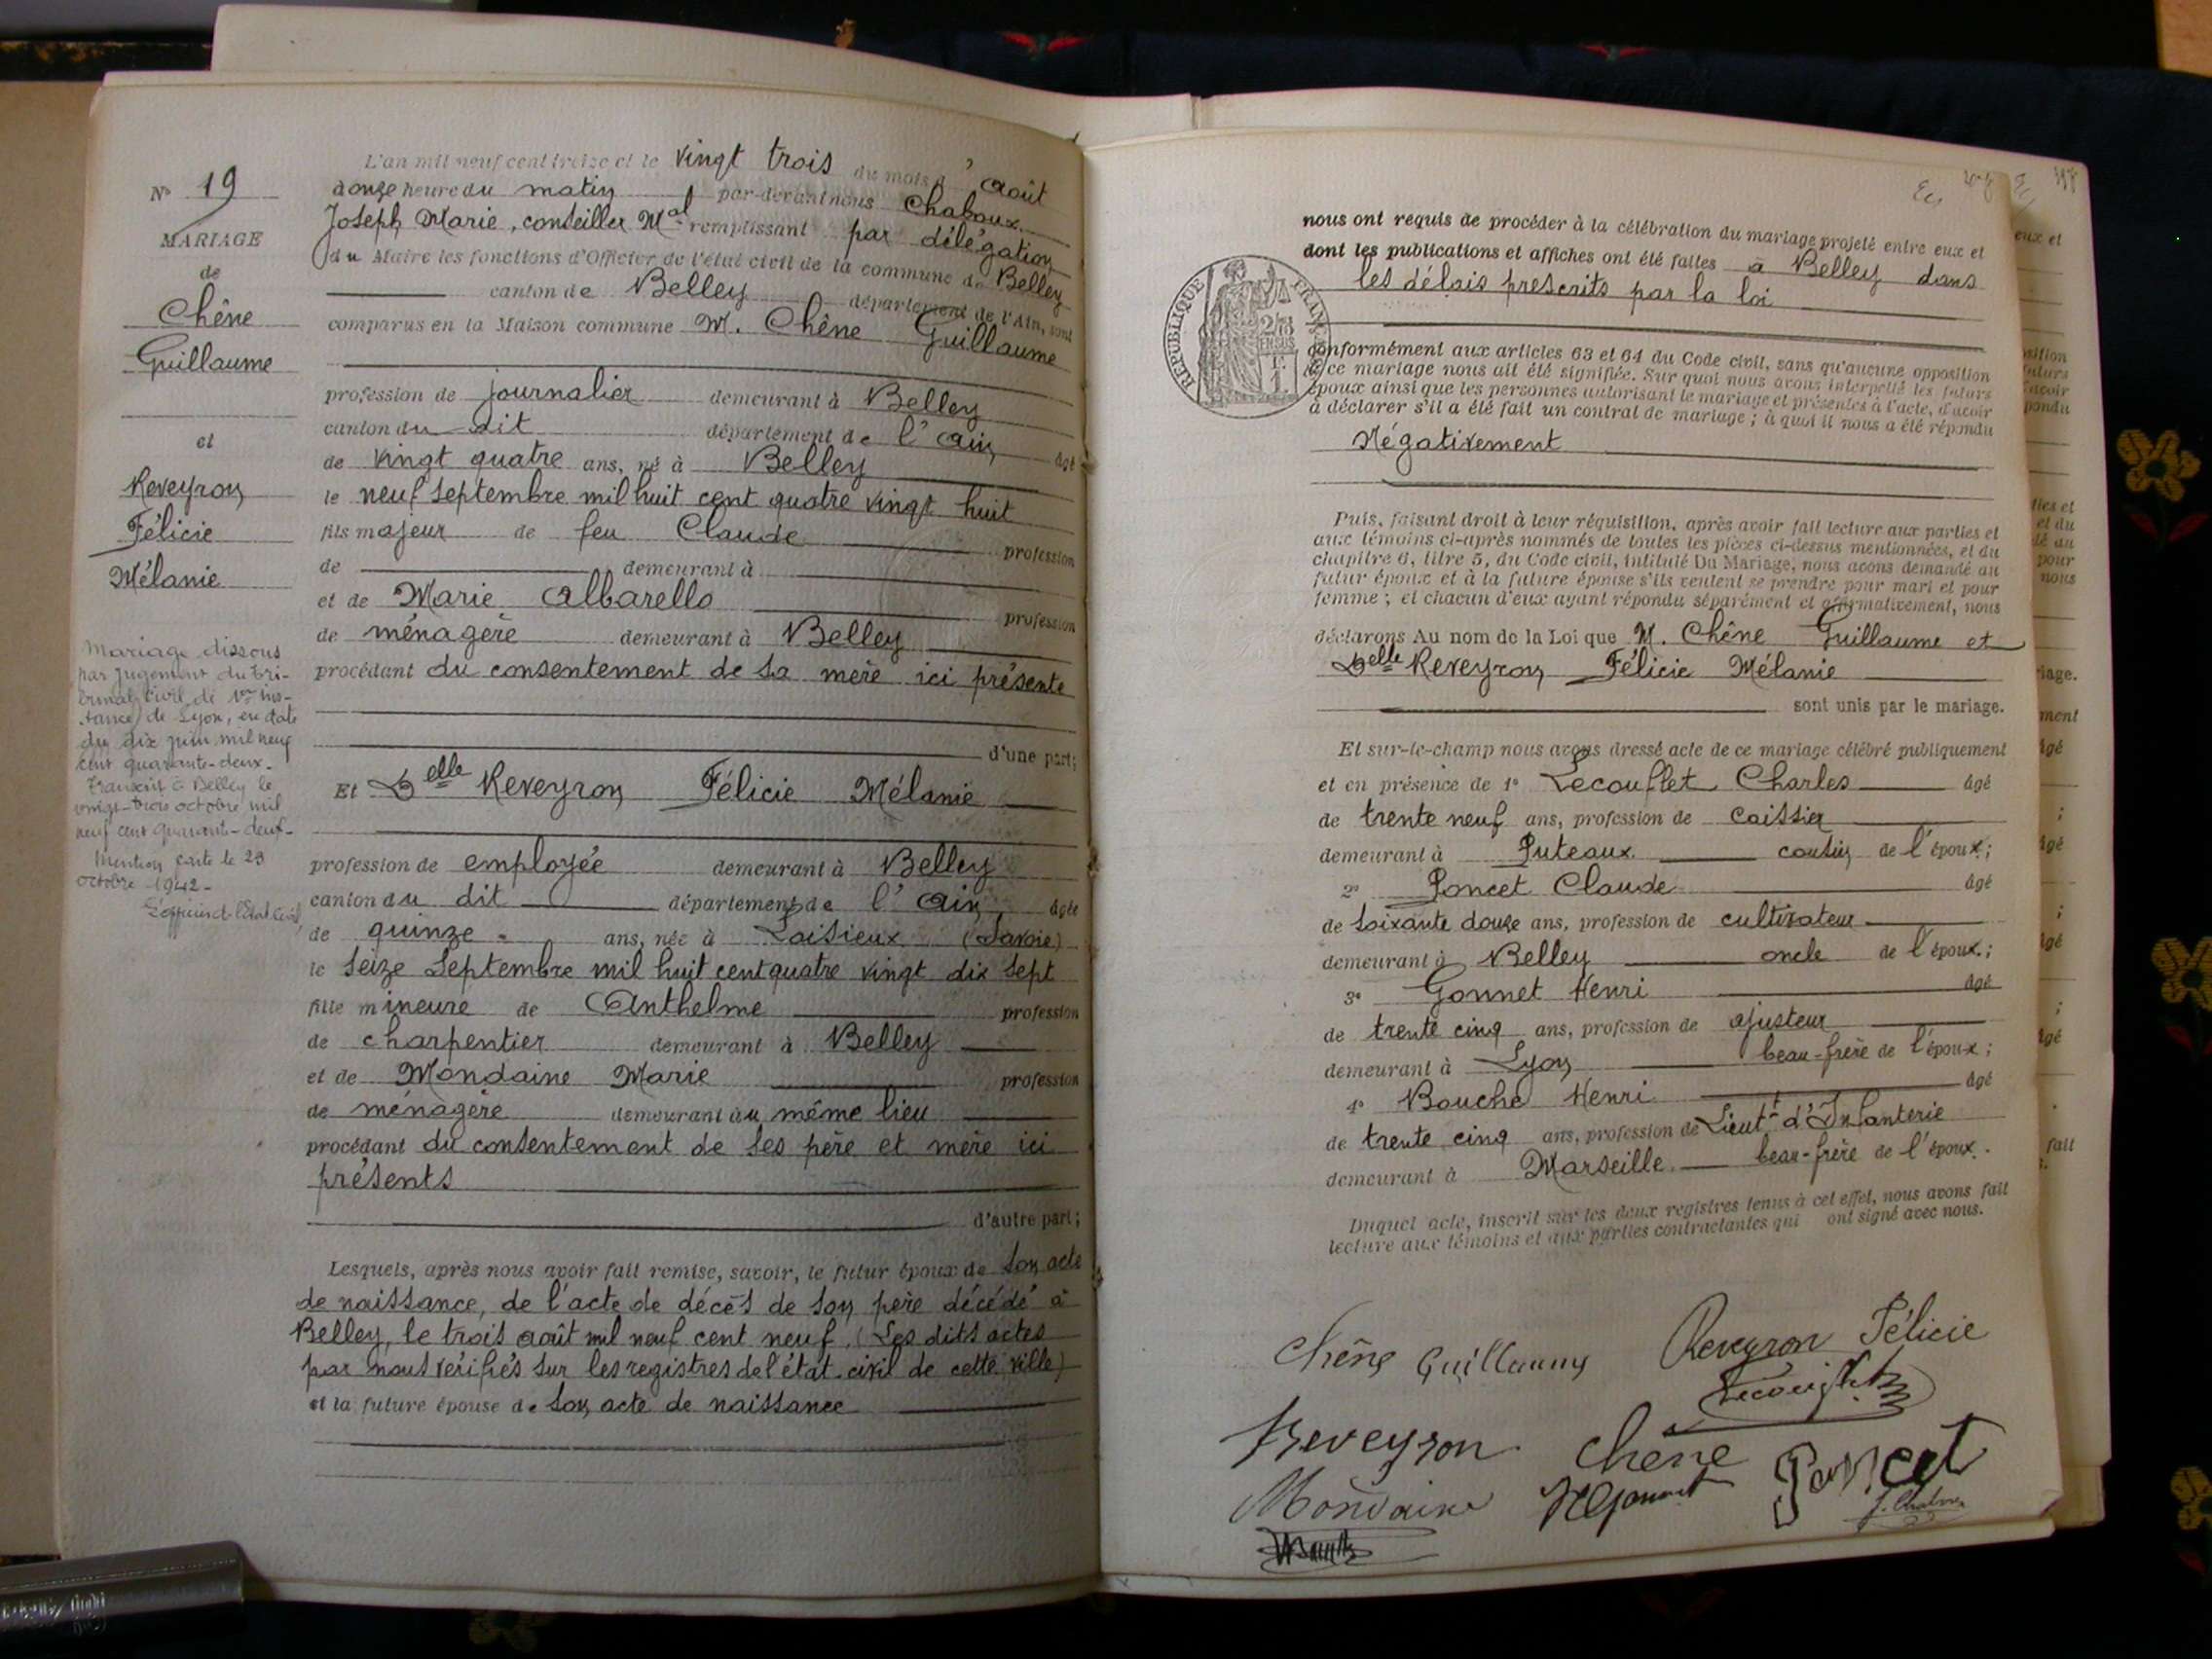 N° 19
MARIAGE
de
Chêne
Guillaume
et
Reveyron
Félicie
Mélanie
Mariage dissous
par jugement du tri-
bunal civil de 1ère ins-
tance de Lyon, en date
du dix juin mil neuf
cent quarante-deux.
Transcrit à Belley le
vingt-trois octobre mil
neuf cent quarante-deux.
Mention faite le 23
octobre 1942-
L'officier de l'état civil,
L'an mil neuf cent treize et le vingt trois du mois d' Août
à onze heure du matin par-devant nous Chaboux
Joseph Marie, conseiller Mal remplissant par délégation
du Maire les fonctions d'Officier de l'état civil de la commune de Belley
canton de Belley département de l'Ain, sont
comparus en la Maison commune M. Chêne Guillaume
profession de journalier demeurant à Belley
canton du dit département de l'Ain âgé
de vingt quatre ans, né à Belley
le neuf septembre mil huit cent quatre vingt huit
fils majeur de feu Claude profession
de demeurant à
et de Marie Albarello profession
de ménagère demeurant à Belley
procédant du consentement de sa mère ici présente
d'une part;
Et Delle Reveyron Félicie Mélanie
profession de employée demeurant à Belley
canton du dit département de l'Ain âgée
de quinze ans, née à Loisieux (Savoie)
le seize septembre mil huit cent quatre vingt dix sept
fille mineure de Anthelme profession
de charpentier demeurant à Belley
et de Mondaine Marie profession
de ménagère demeurant au même lieu
procédant du consentement de ses père et mère ici
présents
d'autre part;
Lesquels, après nous avoir fait remise, savoir, le futur époux de son acte
de naissance, de l'acte de décès de son père décédé à
Belley, le trois août mil neuf cent neuf. (Les dits actes
par nous vérifiés sur les registres de l'état civil de cette ville)
et la future épouse de son acte de naissance
nous ont requis de procéder à la célébration du mariage projeté entre eux et
dont les publications et affiches ont été faites à Belley dans
les délais prescrits par la loi
RÉPUBLIQUE FRANÇAISE
conformément aux articles 63 et 64 du Code civil, sans qu'aucune opposition
à ce mariage nous ait été signifiée. Sur quoi nous avons interpellé les futurs
époux ainsi que les personnes autorisant le mariage et présentes à l'acte, d'avoir
à déclarer s'il a été fait un contrat de mariage; à quoi il nous a été répondu
Négativement
Puis, faisant droit à leur réquisition, après avoir fait lecture aux parties et
aux témoins ci-après nommés de toutes les pièces ci-dessus mentionnées, et du
chapitre 6, titre 5, du Code civil, intitulé Du Mariage, nous avons demandé au
futur époux et à la future épouse s'ils veulent se prendre pour mari et pour
femme; et chacun d'eux ayant répondu séparément et affirmativement, nous
déclarons Au nom de la Loi que M. Chêne Guillaume et
Delle Reveyron Félicie Mélanie
sont unis par le mariage.
Et sur-le-champ nous avons dressé acte de ce mariage célébré publiquement
et en présence de 1° Lecouflet Charles âgé
de trente neuf ans, profession de caissier
demeurant à Puteaux cousin de l'époux;
2° Poncet Claude âgé
de soixante douze ans, profession de cultivateur
demeurant à Belley oncle de l'époux;
3° Gonnet Henri âgé
de trente cinq ans, profession de ajusteur
demeurant à Lyon beau-frère de l'époux;
4° Bouché Henri âgé
de trente cinq ans, profession de Lieutt d'Infanterie
demeurant à Marseille beau-frère de l'époux.
Duquel acte, inscrit sur les deux registres tenus à cet effet, nous avons fait
lecture aux témoins et aux parties contractantes qui ont signé avec nous.
Chêne Guillaume Reveyron Félicie
Lecouflet
Reveyron Chêne Poncet
Mondaine HGonnet J. Chaboux